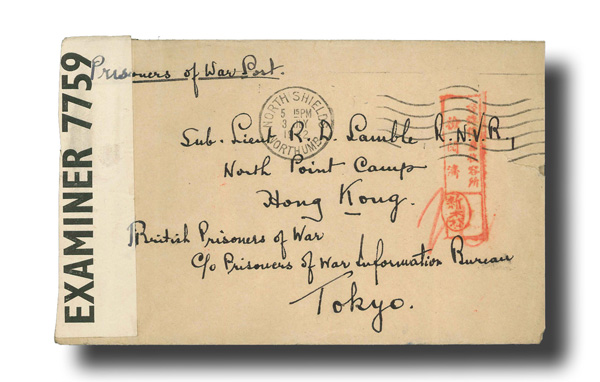 EXAMINER 7759
Prisoners of War Post.
NORTH SHIELDS
5 15PM
NORTHUMB
Sub. Lieut R. D. Lamble R.N.V.R.,
North Point Camp
Hong Kong.
British Prisoners of War
c/o Prisoners of War Information Bureau
Tokyo.